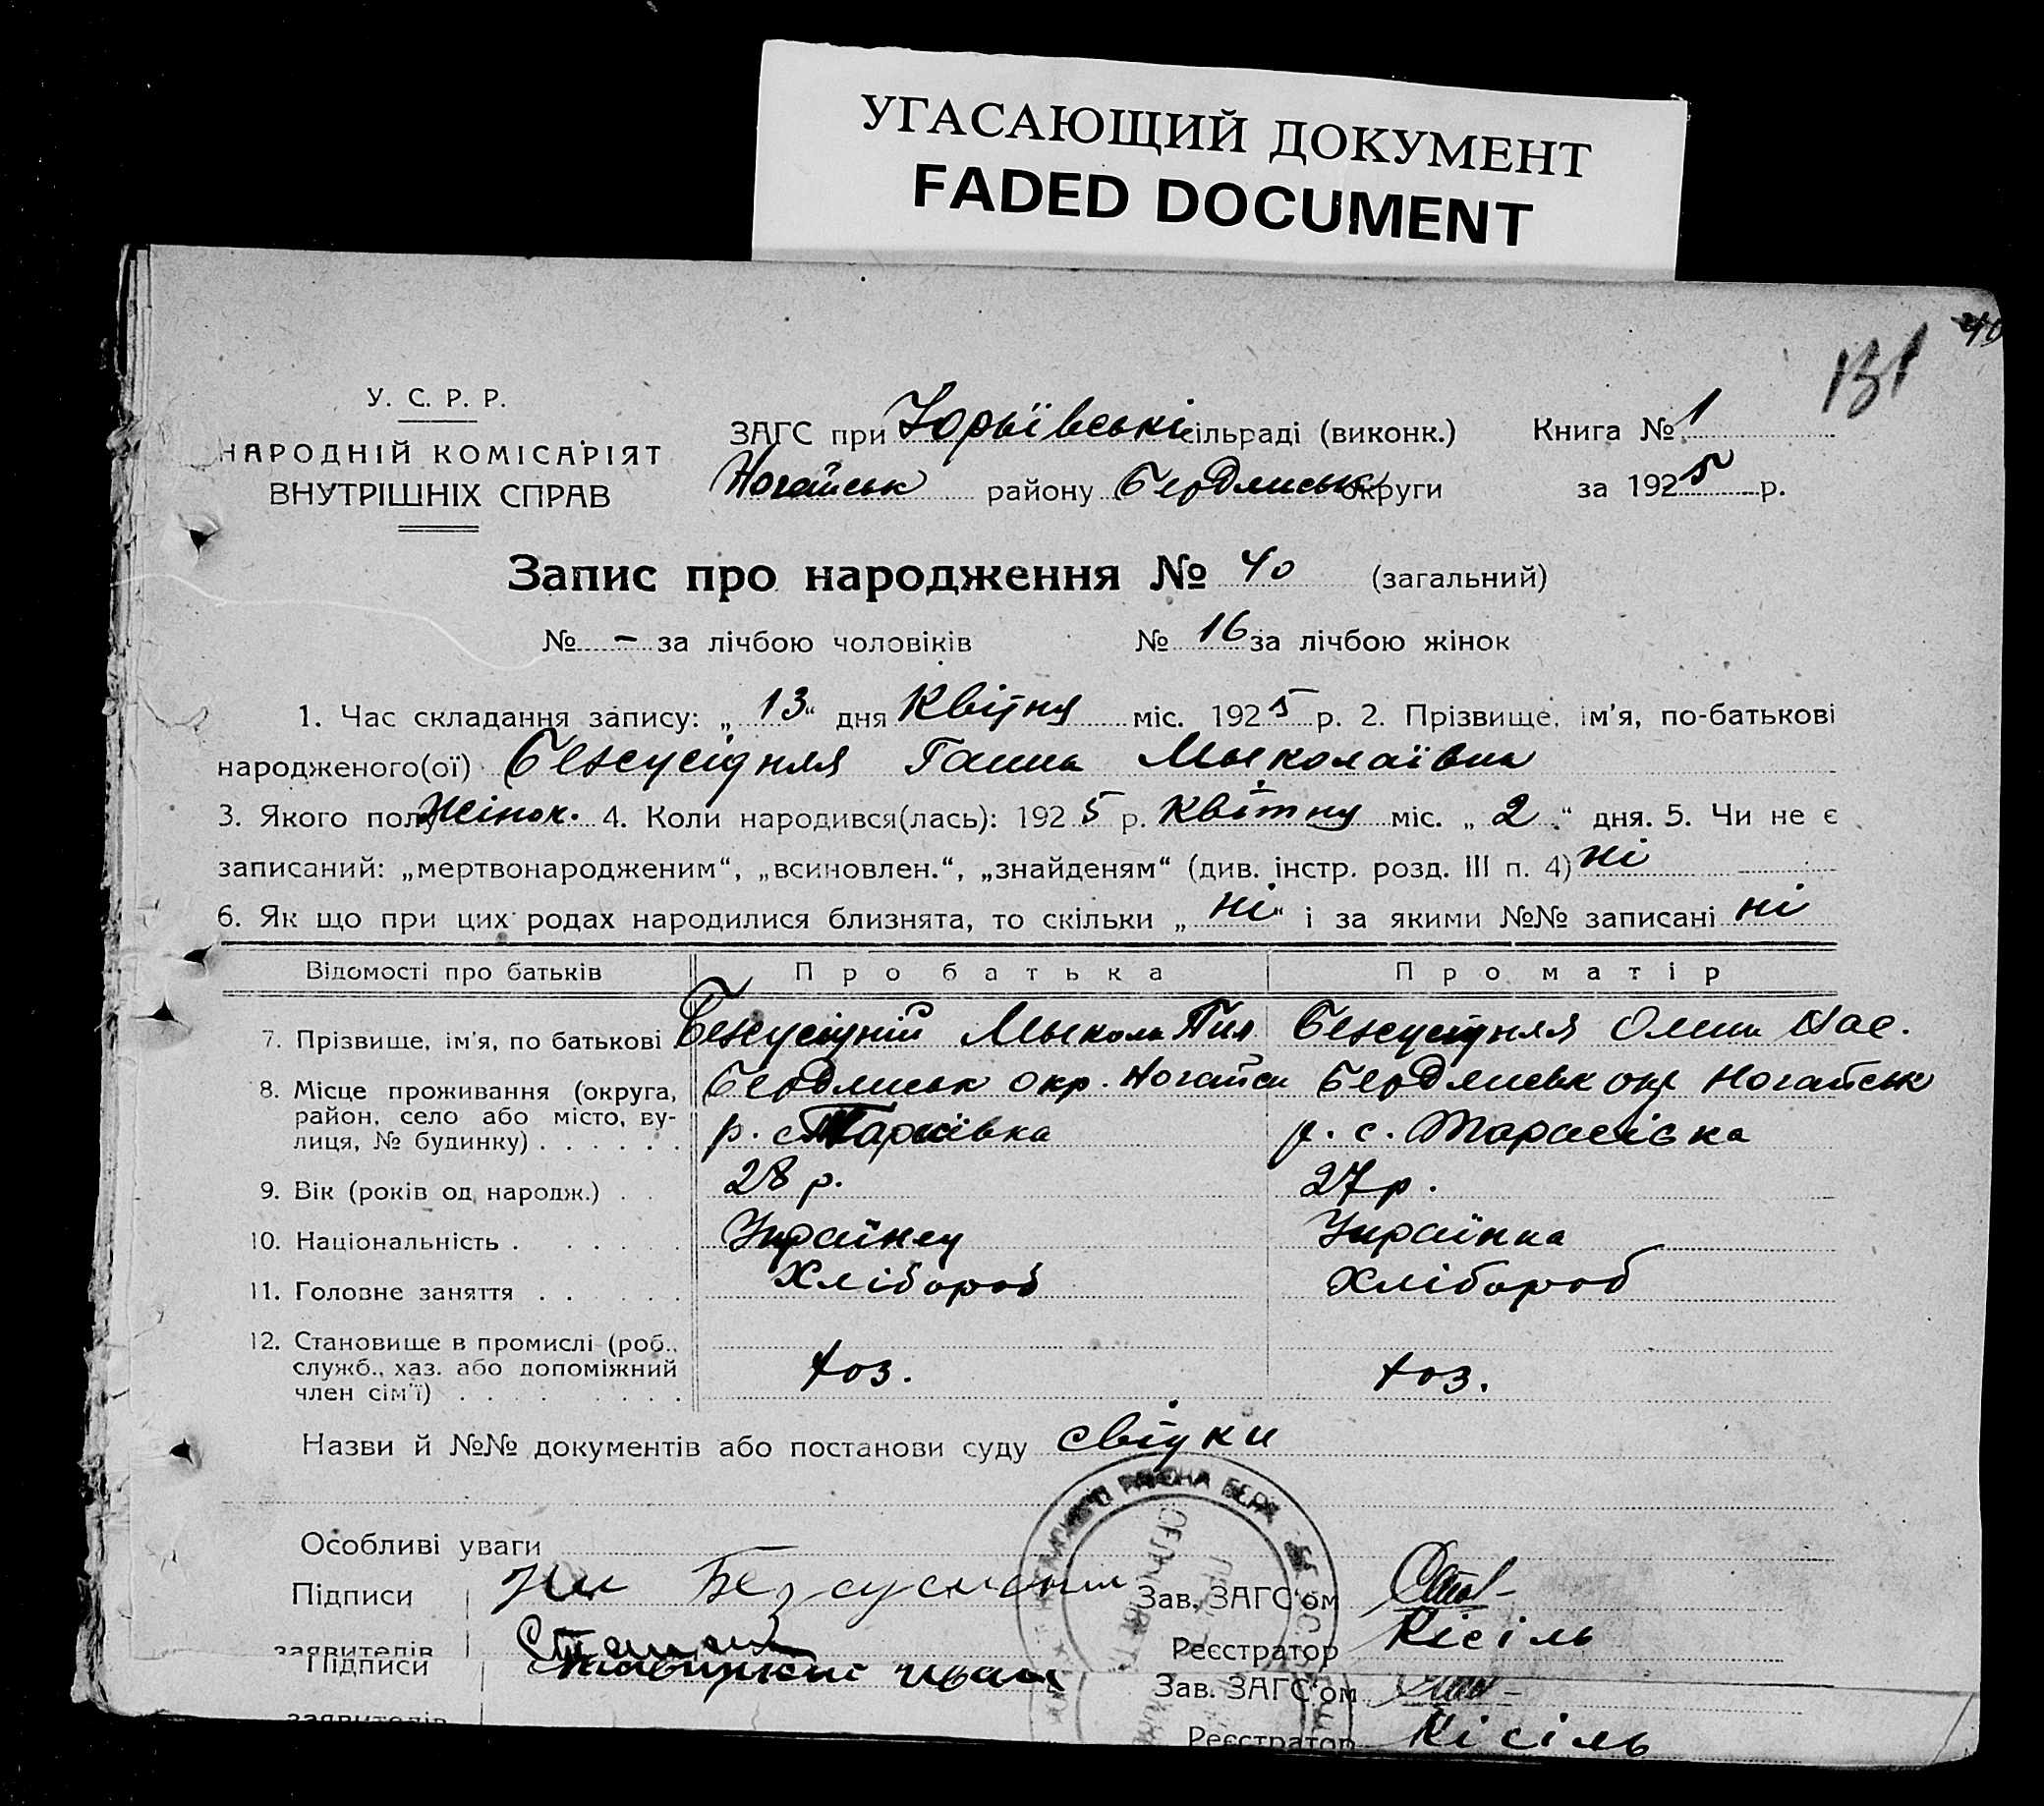 УГАСАЮЩИЙ ДОКУМЕНТ
FADED DOCUMENT
40
131
У. С. Р. Р.
НАРОДНІЙ КОМІСАРІЯТ
ВНУТРІШНІХ СПРАВ
ЗАГС при Юрьївські сільраді (виконк.) Книга № 1
Ногайськ району Бердянськ округи за 1925 р.
Запис про народження № 40 (загальний)
№ - за лічбою чоловіків № 16 за лічбою жінок
1. Час складання запису: „13“ дня Квітня міс. 1925 р. 2. Прізвище, ім'я, по-батькові
народженого(ої) Ганна Мыколаївна
3. Якого полу Жінок. 4. Коли народився(лась): 1925 р. Квітня міс. „2“ дня. 5. Чи не є
записаний: „мертвонародженим“, „всиновлен.“, „знайденям“ (див. інстр. розд. III п. 4) ні
6. Як що при цих родах народилися близнята, то скільки „ні“ і за якими №№ записані ні
Відомості про батьків Про батька Про матір
7. Прізвище, ім'я, по батькові Мыкола
8. Місце проживання (округа, район, село або місто, вулиця, № будинку) Бердянськ окр. Ногайськ Бердянськ окр Ногайськ
р. с. Тарасівка
9. Вік (років од народж.) 28 р. 27 р.
10. Національність Українец Українка
11. Головне заняття Хлібороб Хлібороб
12. Становище в промислі (роб., служб., хаз. або допоміжний член сім'ї) хоз. хоз.
Назви й №№ документів або постанови суду свідки
Особливі уваги
Підписи
заявителів
Зав. ЗАГС'ом
Реєстратор Кісіль
Підписи
заявителів
Зав. ЗАГС'ом
Реєстратор Кісіль